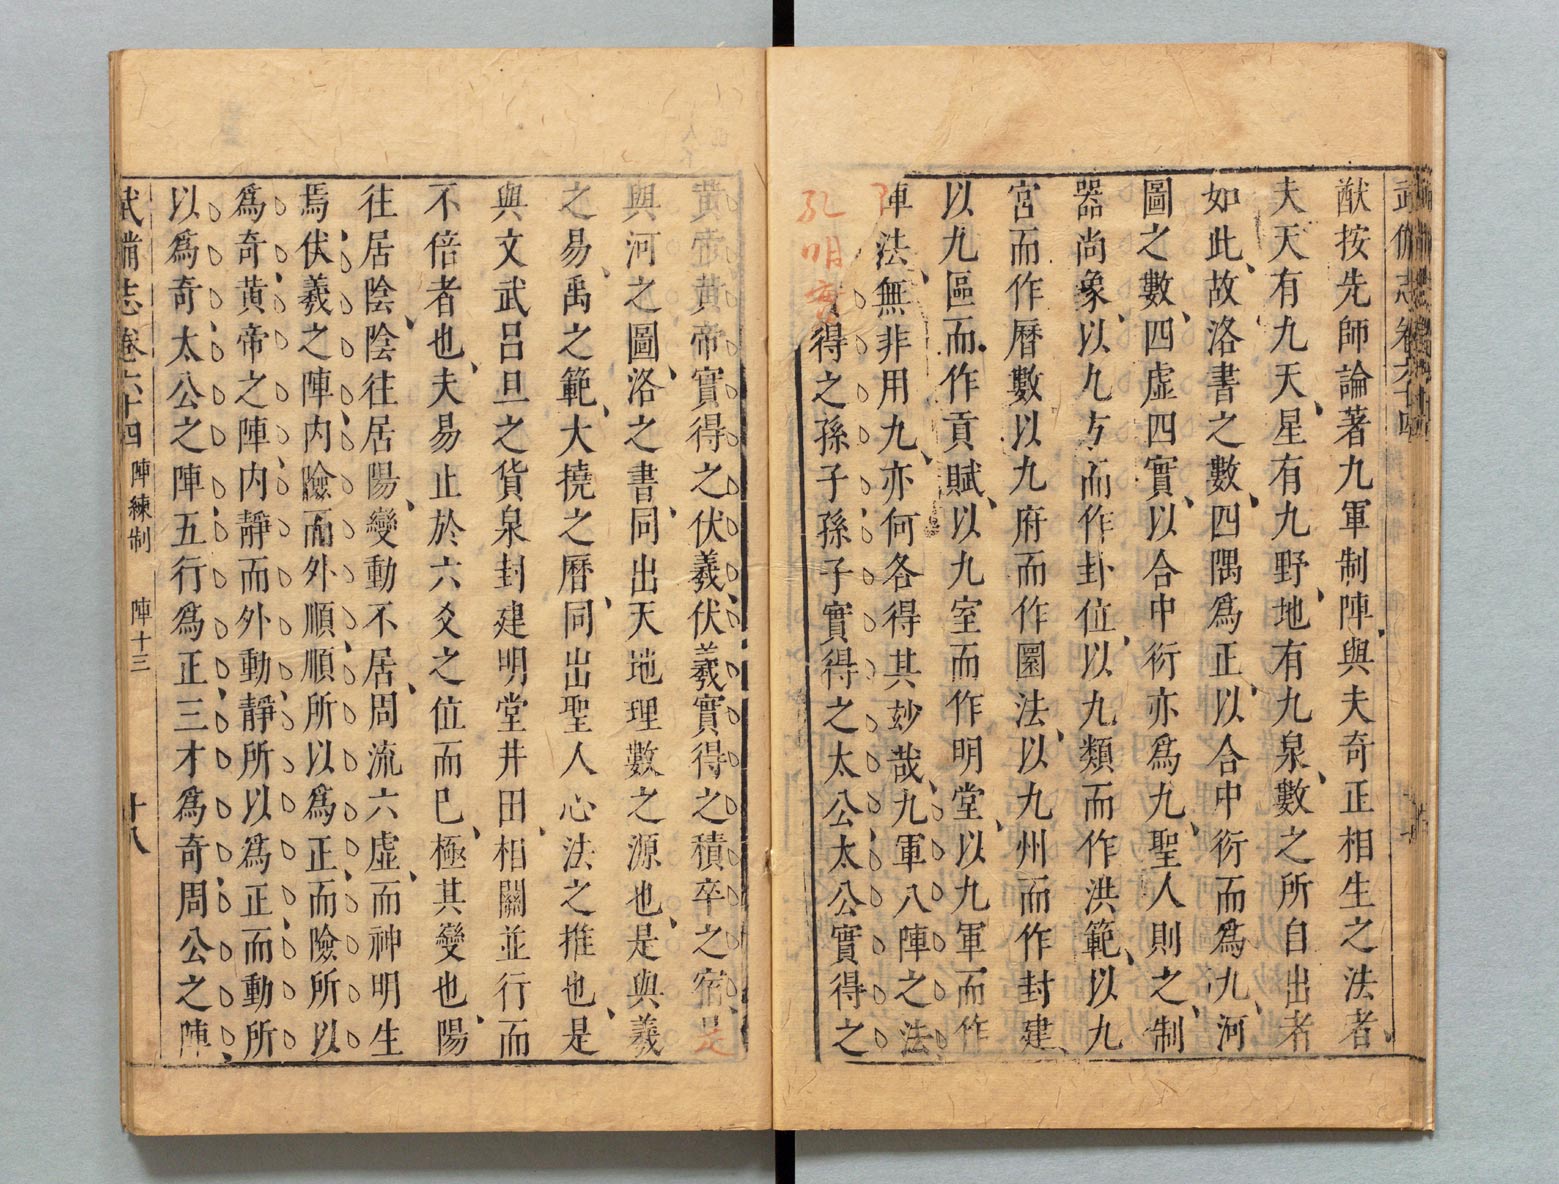 武備志卷六十四
猷按先師論著九軍制陣與夫奇正相生之法者
夫天有九天星有九野地有九泉數之所自出者
如此故洛書之數四隅爲正以合中衍而爲九河
圖之數四虛四實以合中衍亦爲九聖人則之制
器尚象以九方而作卦位以九類而作洪範以九
宮而作曆數以九府而作圜法以九州而作封建
以九區而作貢賦以九室而作明堂以九軍而作
陣法無非用九亦何各得其妙哉九軍八陣之法
孔明實得之孫子孫子實得之太公太公實得之
黃帝黃帝實得之伏羲伏羲實得之積卒之宿是
與河之圖洛之書同出天地理數之源也是與羲
之易禹之範大撓之曆同出聖人心法之推也是
與文武呂旦之貨泉封建明堂井田相關並行而
不倍者也夫易止於六爻之位而已極其變也陽
往居陰陰往居陽變動不居周流六虛而神明生
焉伏羲之陣内險而外順順所以爲正而險所以
爲奇黃帝之陣内靜而外動靜所以爲正而動所
以爲奇太公之陣五行爲正三才爲奇周公之陣
武備志卷六十四 陣練制 陣十三 十八